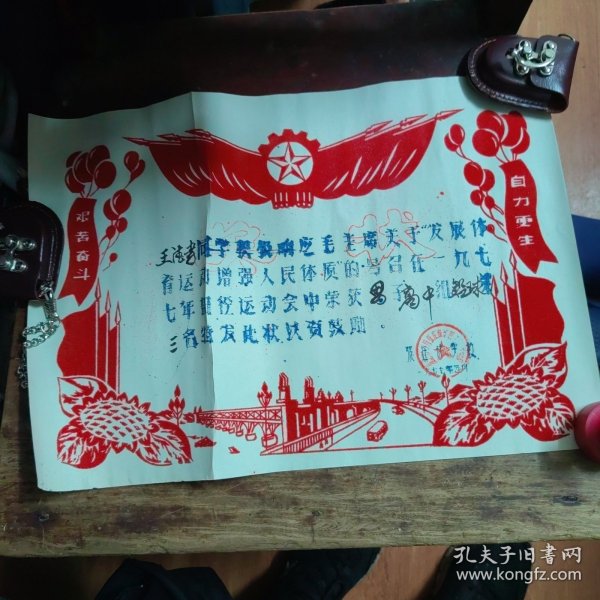 艰苦奋斗
自力更生
奖 状
同学积极响应毛主席关于"发展体
育运动增强人民体质"的号召在一九七
七年 校运动会中荣获男子高中组铅球第
三名特发此状以资鼓励。
孔夫子旧书网
www.kongfz.com